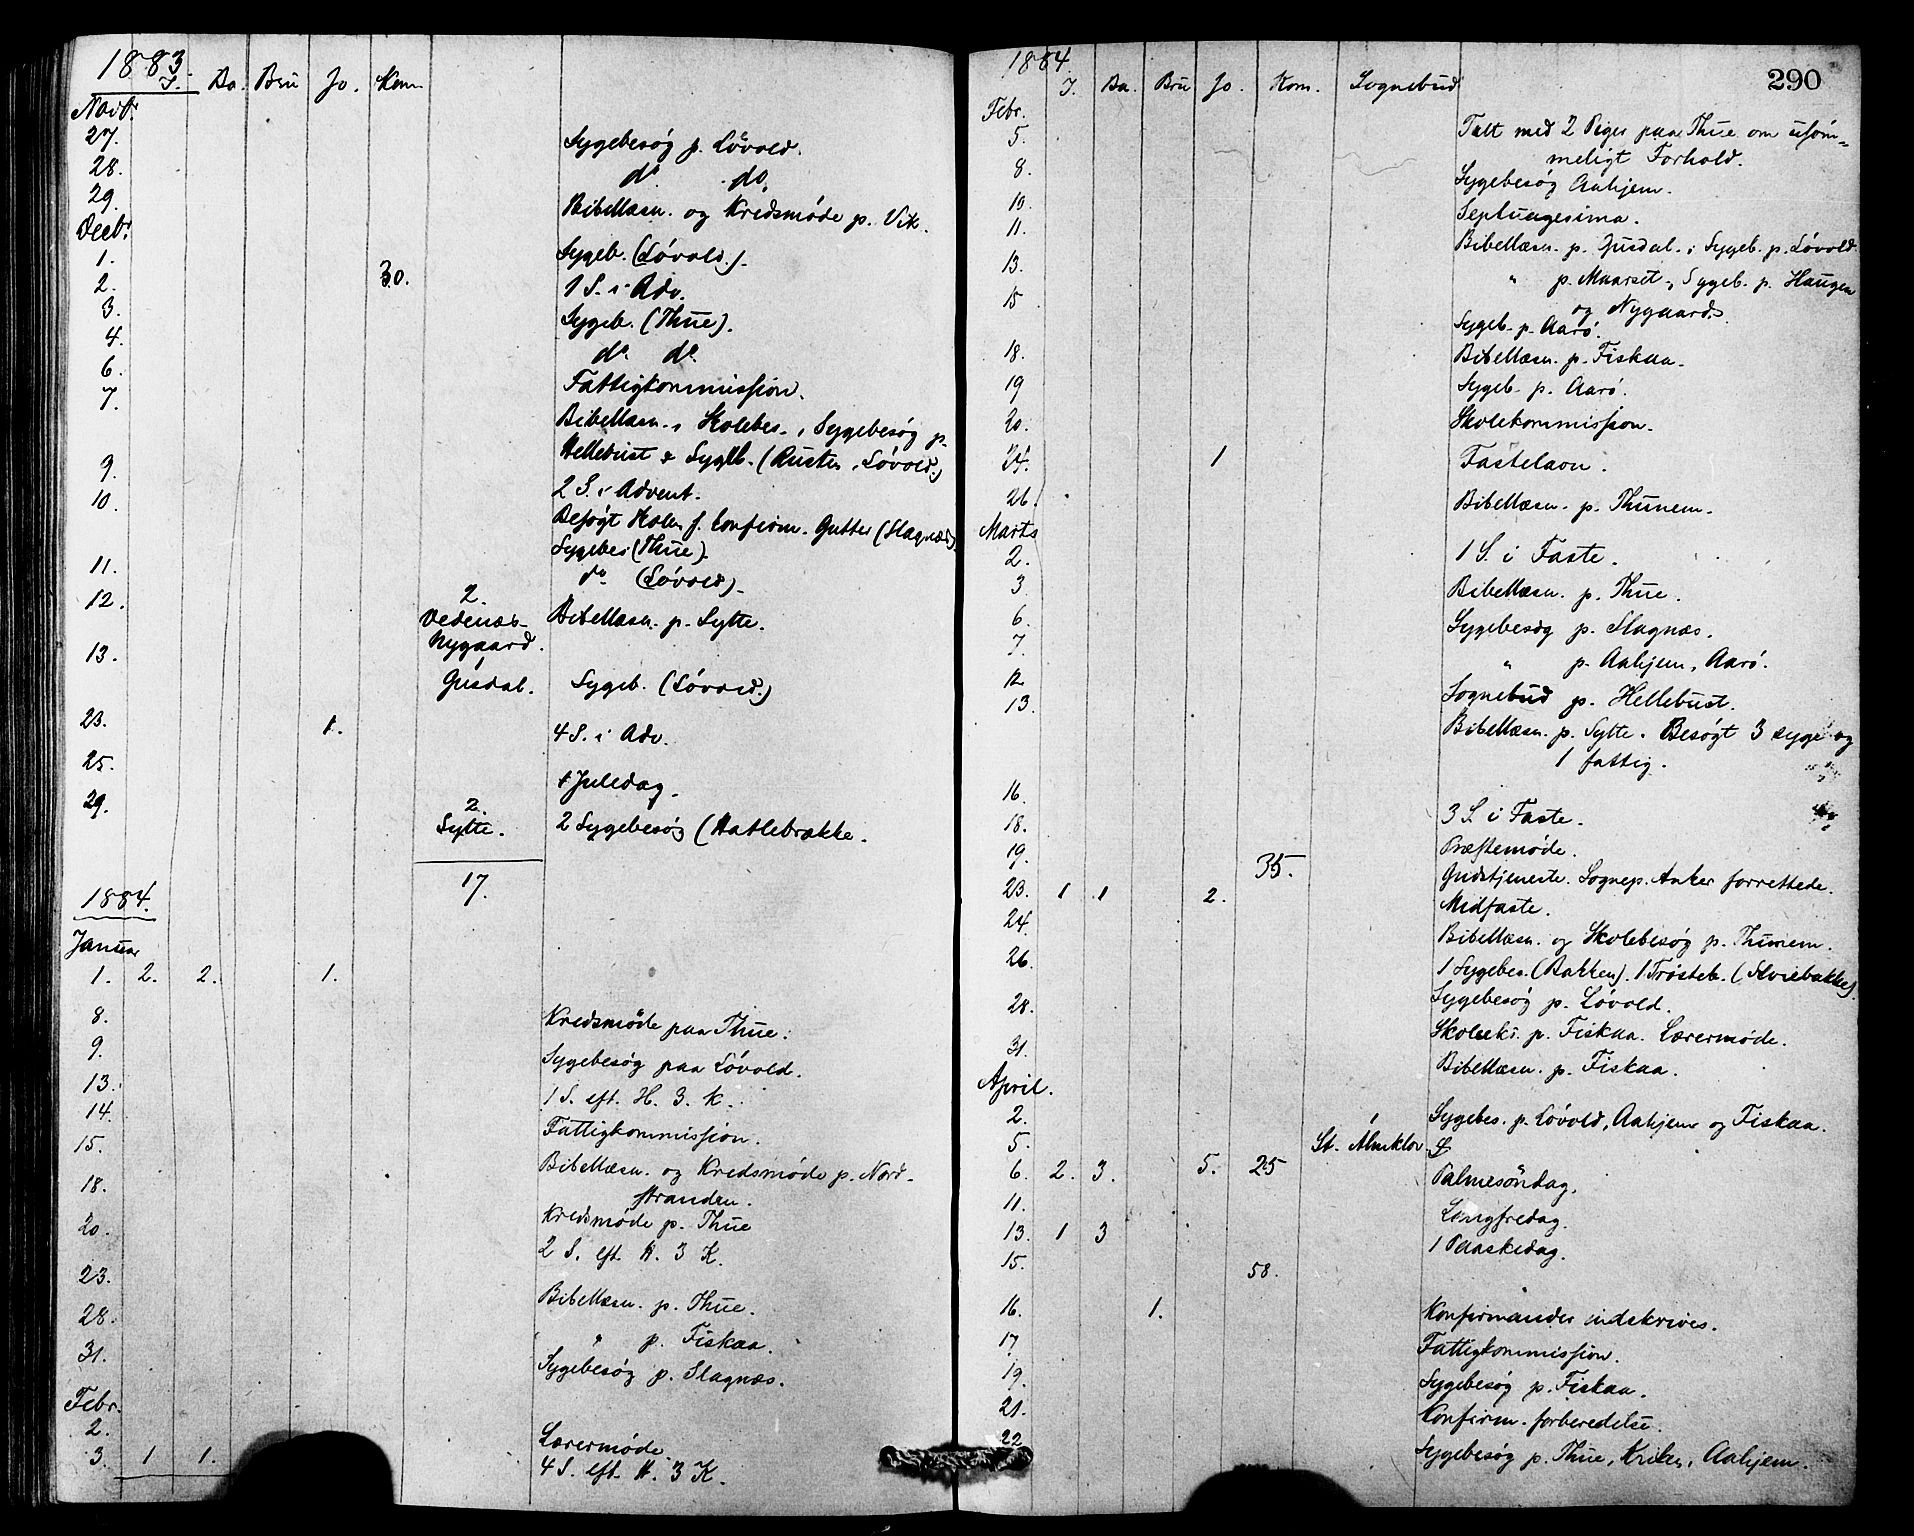 1883. I. Da. Bru Jo. Kom
Novb.
27. Sygebesøg p. Løvold.
28. do. do.
29. Bibellæsn. og Kredsmøde p. Vik.
Decb.
1. Sygeb. (Løvold.)
2. 30. 1 S. i Adv.
3. Sygeb. (Thue).
4. do. do.
6. Fattigkommission.
7. Bibellæsn., Skolebes., Sygebesøg p.
Hellebust & Sygeb. (Løvold.)
9. 2 S. i Advent.
10. Besøgt Skolen f. Confirm. Gutter (Slagnæs).
Sygebes (Thue).
11. do. (Løvold).
12. 2. Vedenæs- Bibellæsn. p. Sytte.
Nygaard.
13. Gusdal. Sygeb. (Løvold.)
23. 1. 4 S. i Adv.
25. 1 Juledag.
29. 2. Sytte. 2 Sygebesøg (Hatlebrække.
17.
1884.
Januar
1. 2. 2. 1.
8. Kredsmøde paa Thue.
9. Sygebesøg paa Løvold.
13. 1 S. eft. H. 3. K.
14. Fattigkommission.
15. Bibellæsn. og Kredsmøde p. Nord-
stranden.
18. Kredsmøde p. Thue
20. 2 S. eft. H. 3 K.
23. Bibellæsn. p. Thue.
28. " p. Fiskaa.
31. Sygebesøg p. Slagnæs.
Febr.
2. Lærermøde
3. 1 1. 4 S. eft. H. 3 K.
1884 I. Da. Bru Jo. Kom. Sognebud 290
Febr.
5. Talt med 2 Piger paa Thue om usøm-
meligt Forhold.
8. Sygebesøg Aahjem.
10. Septuagesima.
11. Bibellæsn. p. Gusdal. Sygeb. p. Løvold
13. " p. Maurset, Sygeb. p. Haugen
og Nygaard.
15 Sygeb. p. Aarø.
18. Bibellæsn. p. Fiskaa.
19 Sygeb. p. Aarø.
20. Skolekommission.
24. 1 Fastelavn.
26. Bibellæsn. p. Thunem.
Marts
2. 1 S. i Faste.
3 Bibellæsn. p. Thue.
6. Sygebesøg p. Slagnæs.
7. " p. Aahjem, Aarø.
12 Sognebud p. Hellebust.
13. Bibellæsn. p. Sytte. Besøgt 3 syge og
1 fattig.
16. 3 S. i Faste.
18. Præstemøde.
19. 35. Gudstjeneste. Sognep. Anker forrettede.
23. 1 1 2. Midfaste.
24. Bibellæsn. og Skolebesøg p. Thunem.
26. 1 Sygebes. (Bakken). 1 Trøsteb.
Sygebesøg p. Løvold.
28. p. Fiskaa. Lærermøde.
31. Bibellæsn. p. Fiskaa.
April.
2. Sygebes. p. Løvold, Aahjem og Fiskaa.
5. 1 St. Almklov
6. 2. 3. 5. 25 Palmesøndag.
11. Langfredag.
13. 1 3 1 Paaskedag.
15. 58.
16. 1. Konfirmander indskrives.
17 Fattigkommission.
19. Sygebesøg p. Fiskaa.
21. Konfirm. forberedelse.
22 Sygebesøg p. Thue, Kriken, Aahjem.